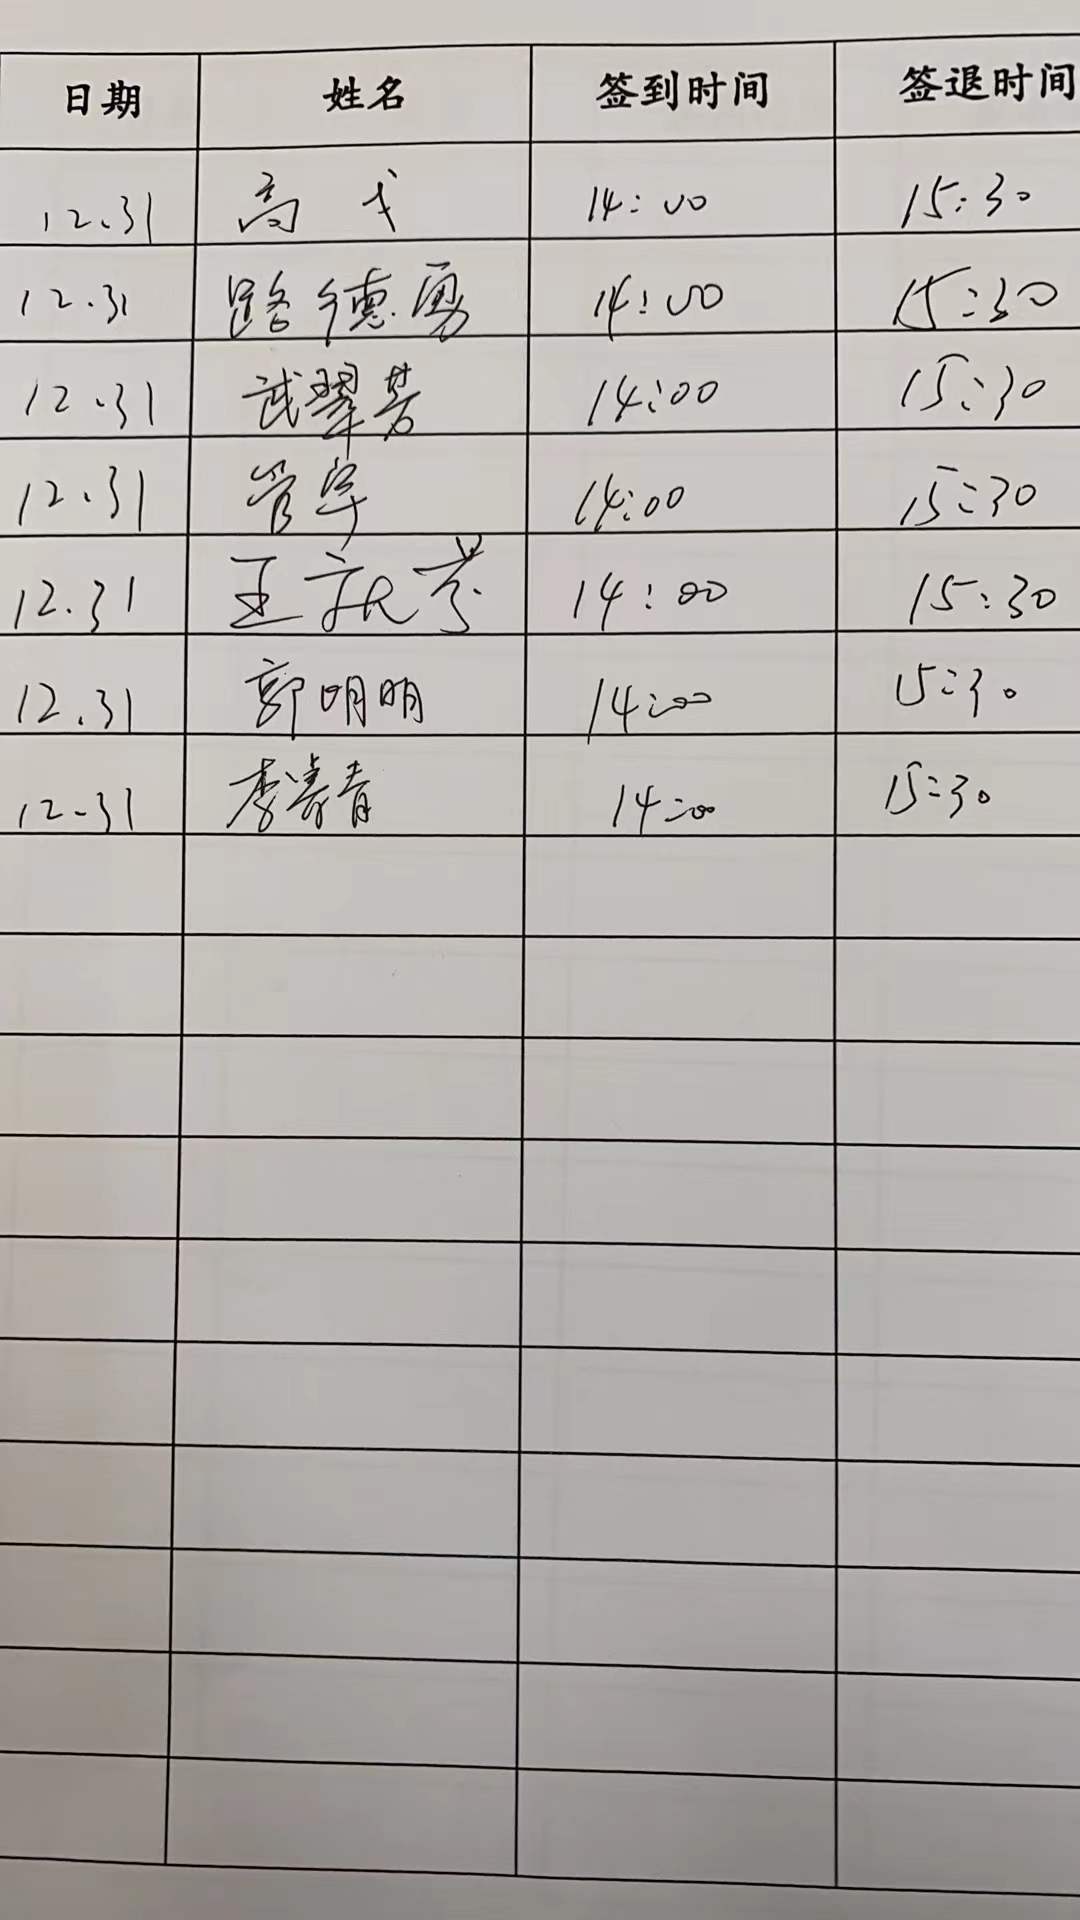 日期 姓名 签到时间 签退时间
12.31 高 14:00 15:30
12.31 路德勇 14:00 15:30
12.31 武翠芳 14:00 15:30
12.31 管宇 14:00 15:30
12.31 王 14:00 15:30
12.31 郭明明 14:00 15:30
12.31 李春青 14:00 15:30